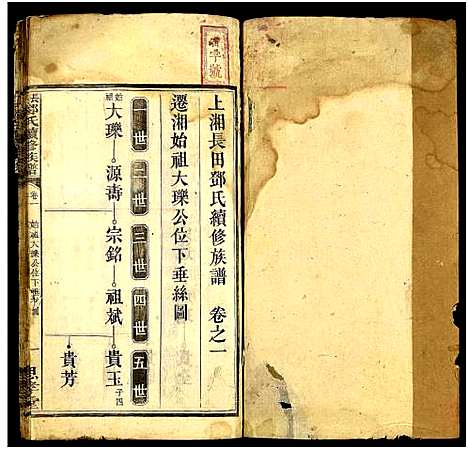 上湘長田鄧氏續修族譜 卷之一
遷湘始祖大瓅公位下垂絲圖
一世 二世 三世 四世 五世
始祖 大瓅 源壽 宗銘 祖斌 貴玉 子四
貴芳
長鄧氏續修族譜 卷一 始祖大瓅公位下垂絲圖 一 思孝堂
字號